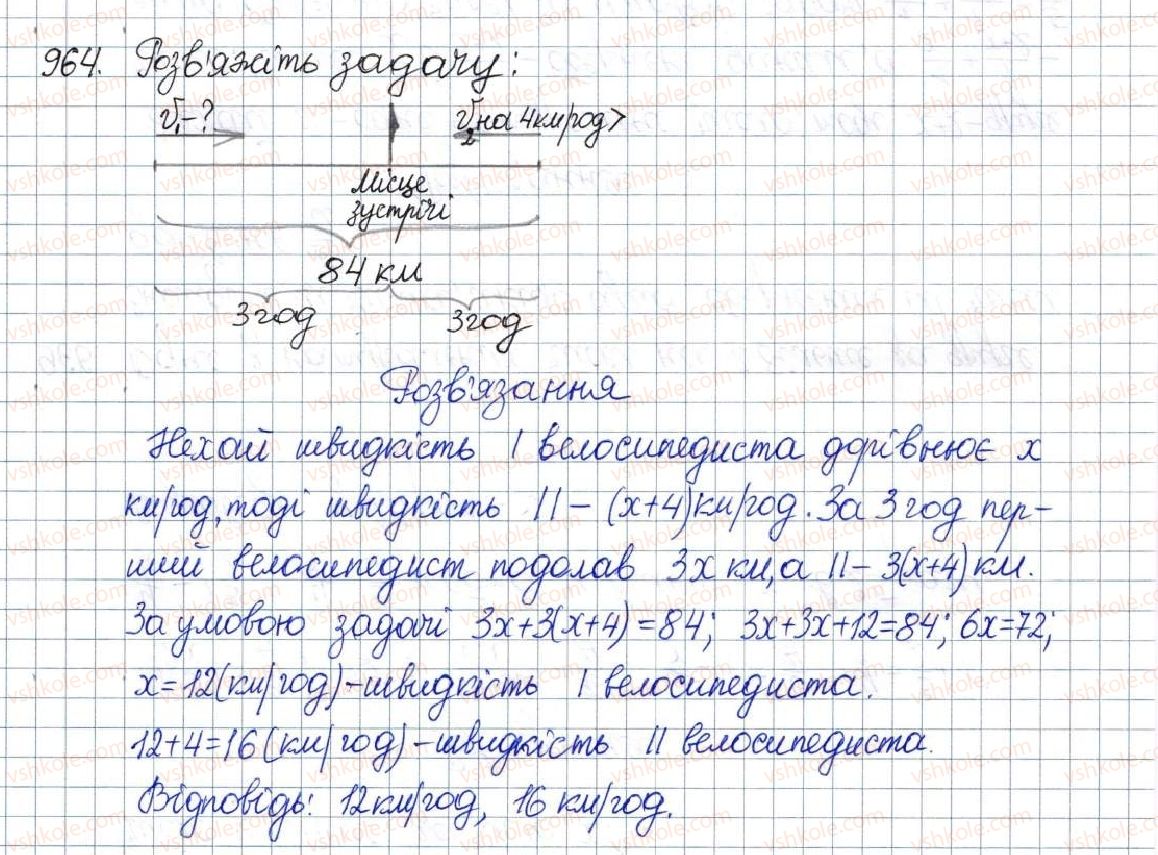 964. Розв'яжіть задачу:
V₁-? V₂ на 4км/год >
Місце
зустрічі
84 км
3год 3год
Розв'язання
Нехай швидкість І велосипедиста дорівнює x
км/год, тоді швидкість ІІ – (x+4)км/год. За 3 год пер-
ший велосипедист подолав 3x км, а ІІ – 3(x+4) км.
За умовою задачі 3x+3(x+4)=84; 3x+3x+12=84; 6x=72;
x=12(км/год)-швидкість І велосипедиста.
12+4=16(км/год)-швидкість ІІ велосипедиста.
Відповідь: 12км/год, 16 км/год.